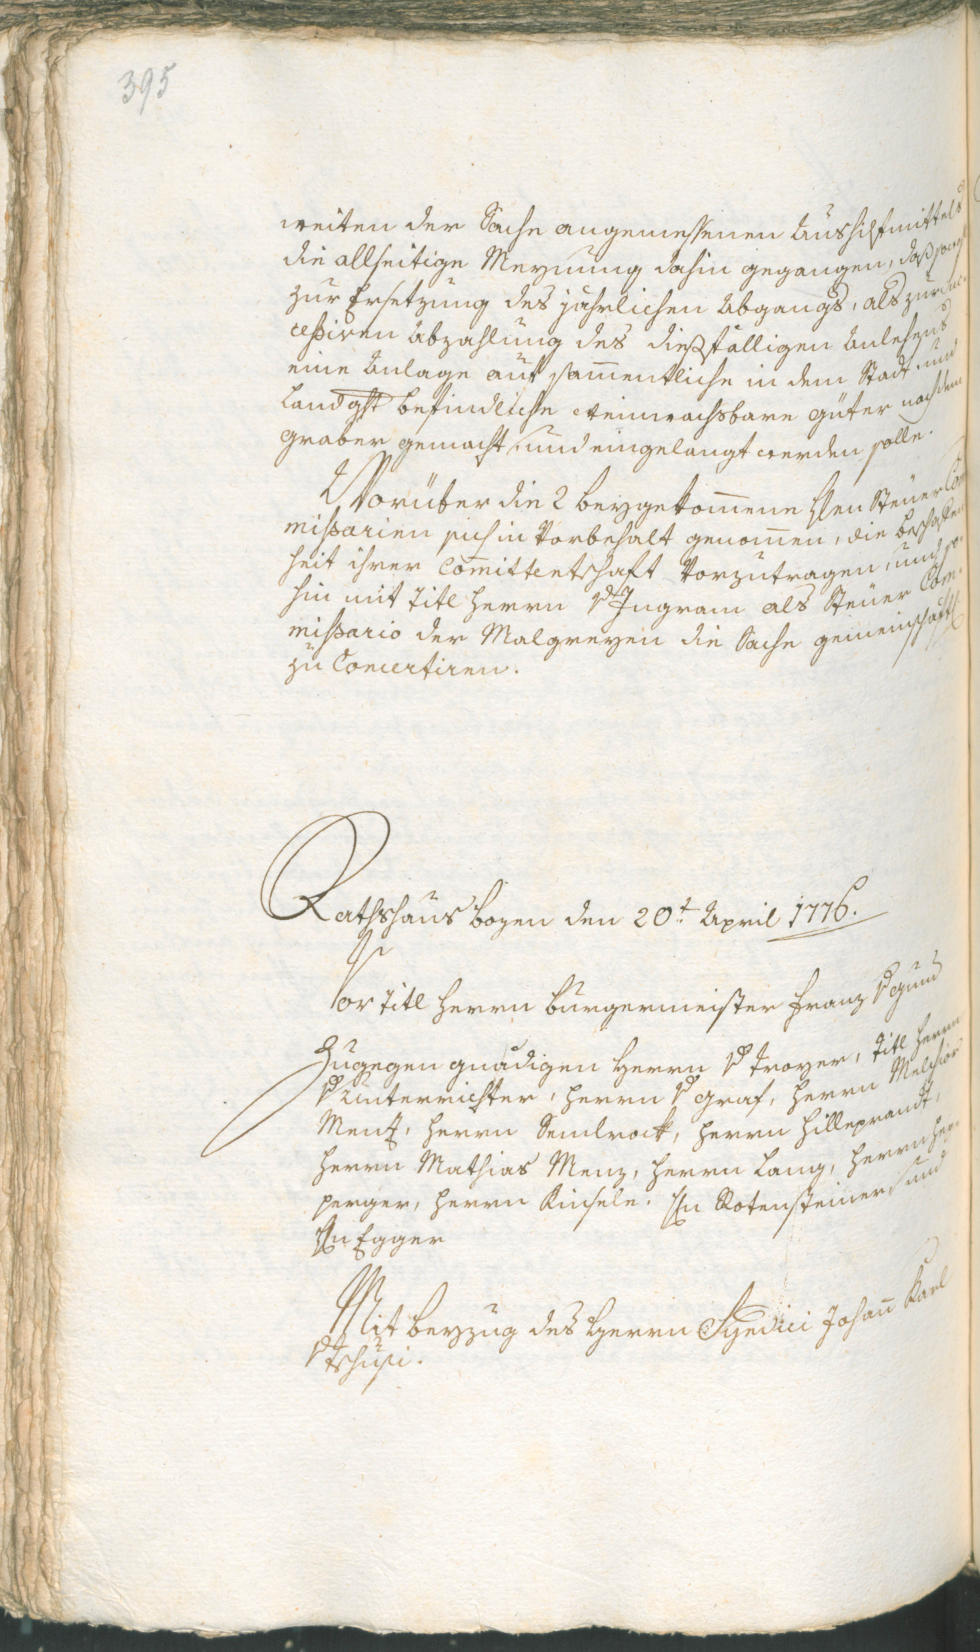 395
weiten der Sache angemessenen Aushilfmittels
die allseitige Meynung dahin gegangen, daß sowohl
zur Ersetzung des jährlichen Abgangs, als zur suc-
cessiven Abzahlung des dießfälligen Anlehens
eine Anlage auf sam̅entliche in dem Stadt und
Landght befindliche Weinwachsbare güter nach dem
graber gemacht, und eingelangt werden solle.
Worüber die 2 beygekom̅ene Hen Steuer Com̅-
missarien sich in Vorbehalt genom̅en, die beschaffen-
heit ihrer Com̅ittentschaft Vorzutragen, und so-
hin mit Titl Herrn v Ingram als Steuer Com-
missario der Malgreyen die Sache gemeinschaftl
zu Concertiren.
Rathshaus bozen den 20t April 1776.
Vor Titl Herrn burgermeister Franz v gum̅
Zugegen gnädigen Herrn v Troyer, Titl Herrn
v Unterrichter, Herrn v graf, Herrn Melchior
Menz, Herrn Semlrock, Herrn Hilleprandt,
Herrn Mathias Menz, Herrn Lang, Herrn Hep-
perger, Herrn Kinsele. Hn Rotensteiner und
Hn Egger
Mit beyzug des Herrn Syndici Johan̅ Karl
v Tschusi.